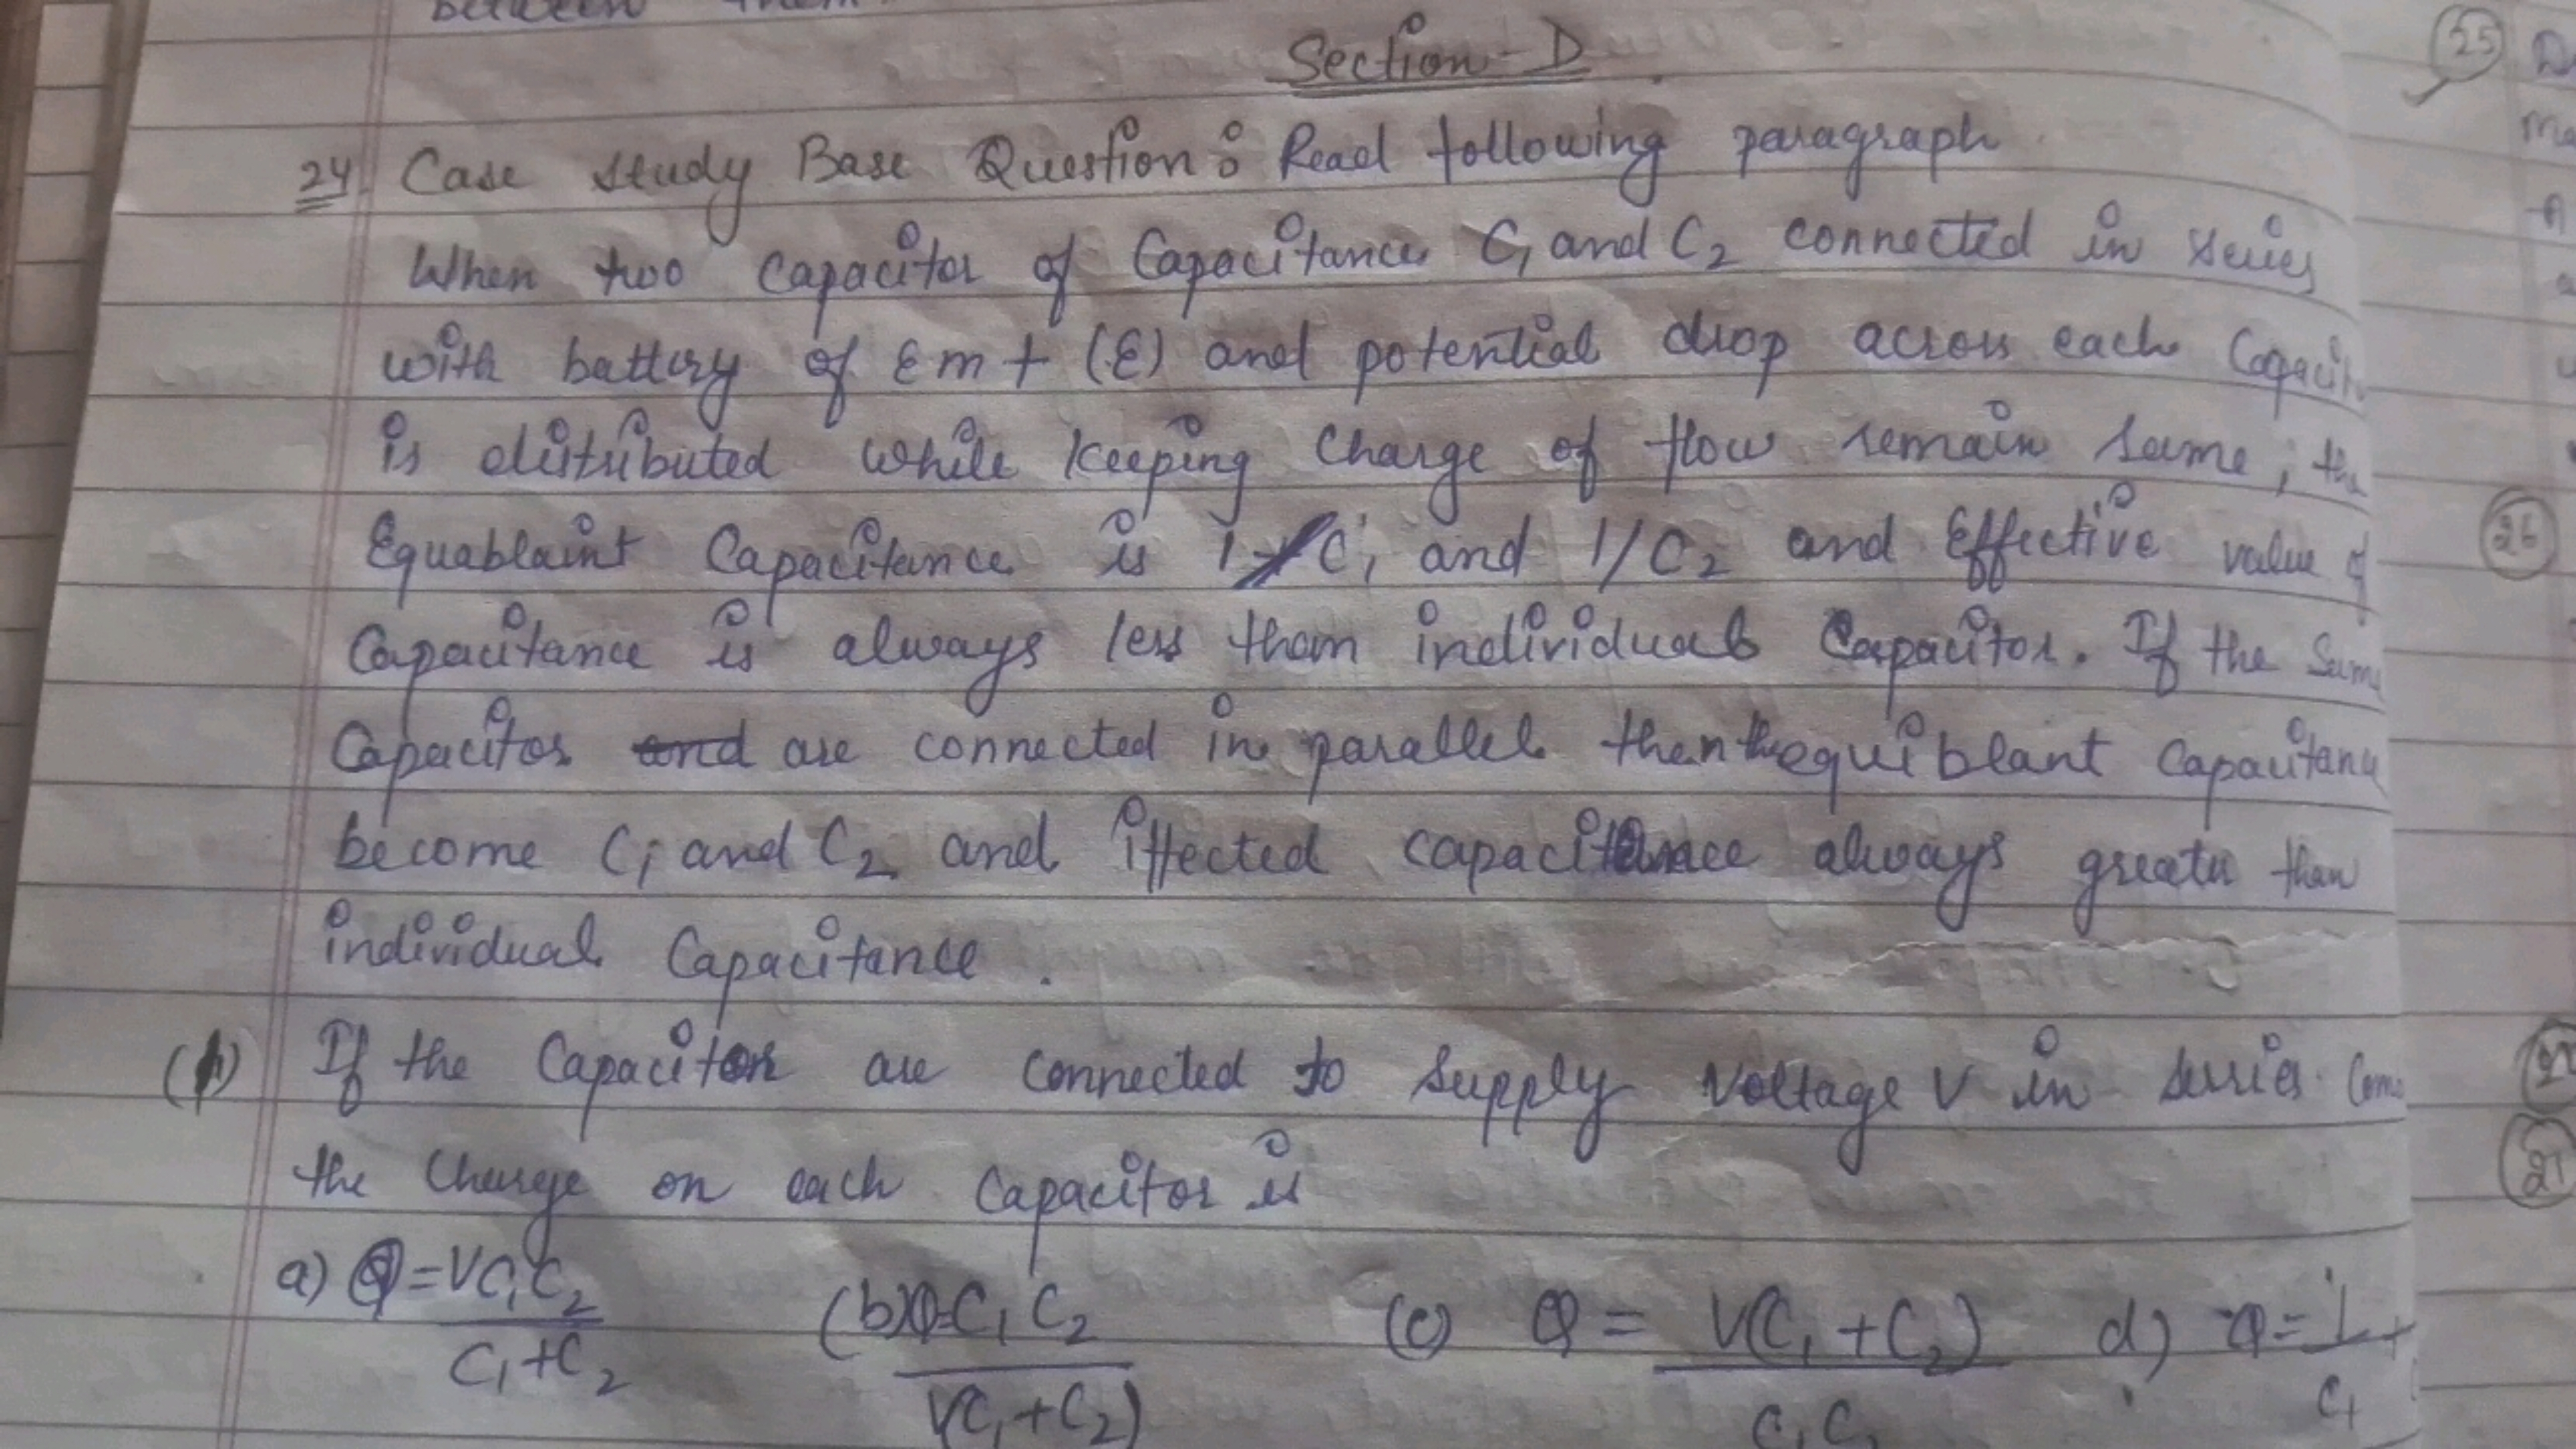 between them
Section-D
24. Case study Base Question : Read following paragraph
When two capacitor of Capacitance C1 and C2 connected in series
with battery of Emt (E) and potential drop across each Capacit
is distributed while keeping Charge of flow remain same, the
Equablaint Capacitance is 1/C1 and 1/C2 and Effective value of
Capacitance is always less than individual Capacitor. If the Same
Capacitor and are connected in parallel then the equiblant Capacitanc
become C1 and C2 and iffected capacitance always greater than
individual Capacitance.
(1) If the Capacitor are connected to supply voltage V in series
the Charge on each Capacitor is
a) Q = VC1C2 / C1+C2 (b) Q = C1C2 / V(C1+C2) (c) Q = V(C1+C2) / C1C2 d) Q = 1 / C1 +
25
26
27